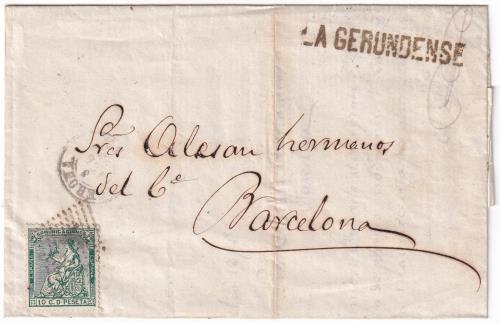 LA GERUNDENSE
Sres Alesan hermanos
del Ce
Barcelona
COMUNICACIONES
10 C. D PESETA